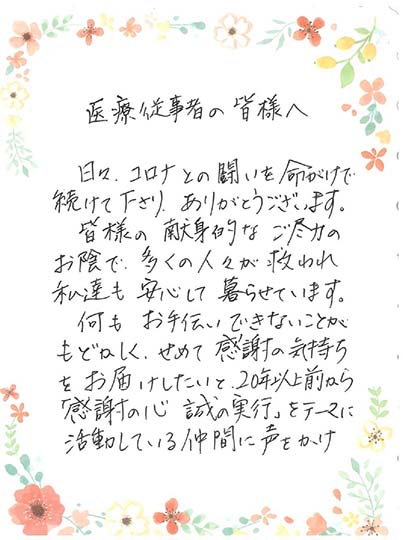 医療従事者の皆様へ
日々、コロナとの闘いを命がけで
続けて下さり、ありがとうございます。
皆様の献身的なご尽力の
お陰で、多くの人々が救われ
私達も安心して暮らせています。
何もお手伝いできないことが
もどかしく、せめて感謝の気持ち
をお届けしたいと、20年以上前から
「感謝の心 誠の実行」をテーマに
活動している仲間に声をかけ